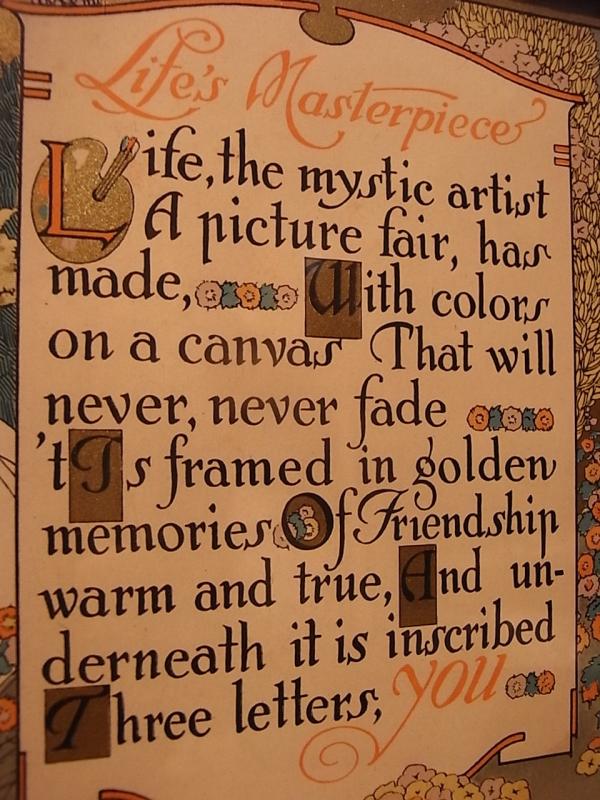 Life's Masterpiece
Life, the mystic artist
A picture fair, has
made, With colors
on a canvas That will
never, never fade
'tIs framed in golden
memories Of Friendship
warm and true, And un-
derneath it is inscribed
Three letters, you